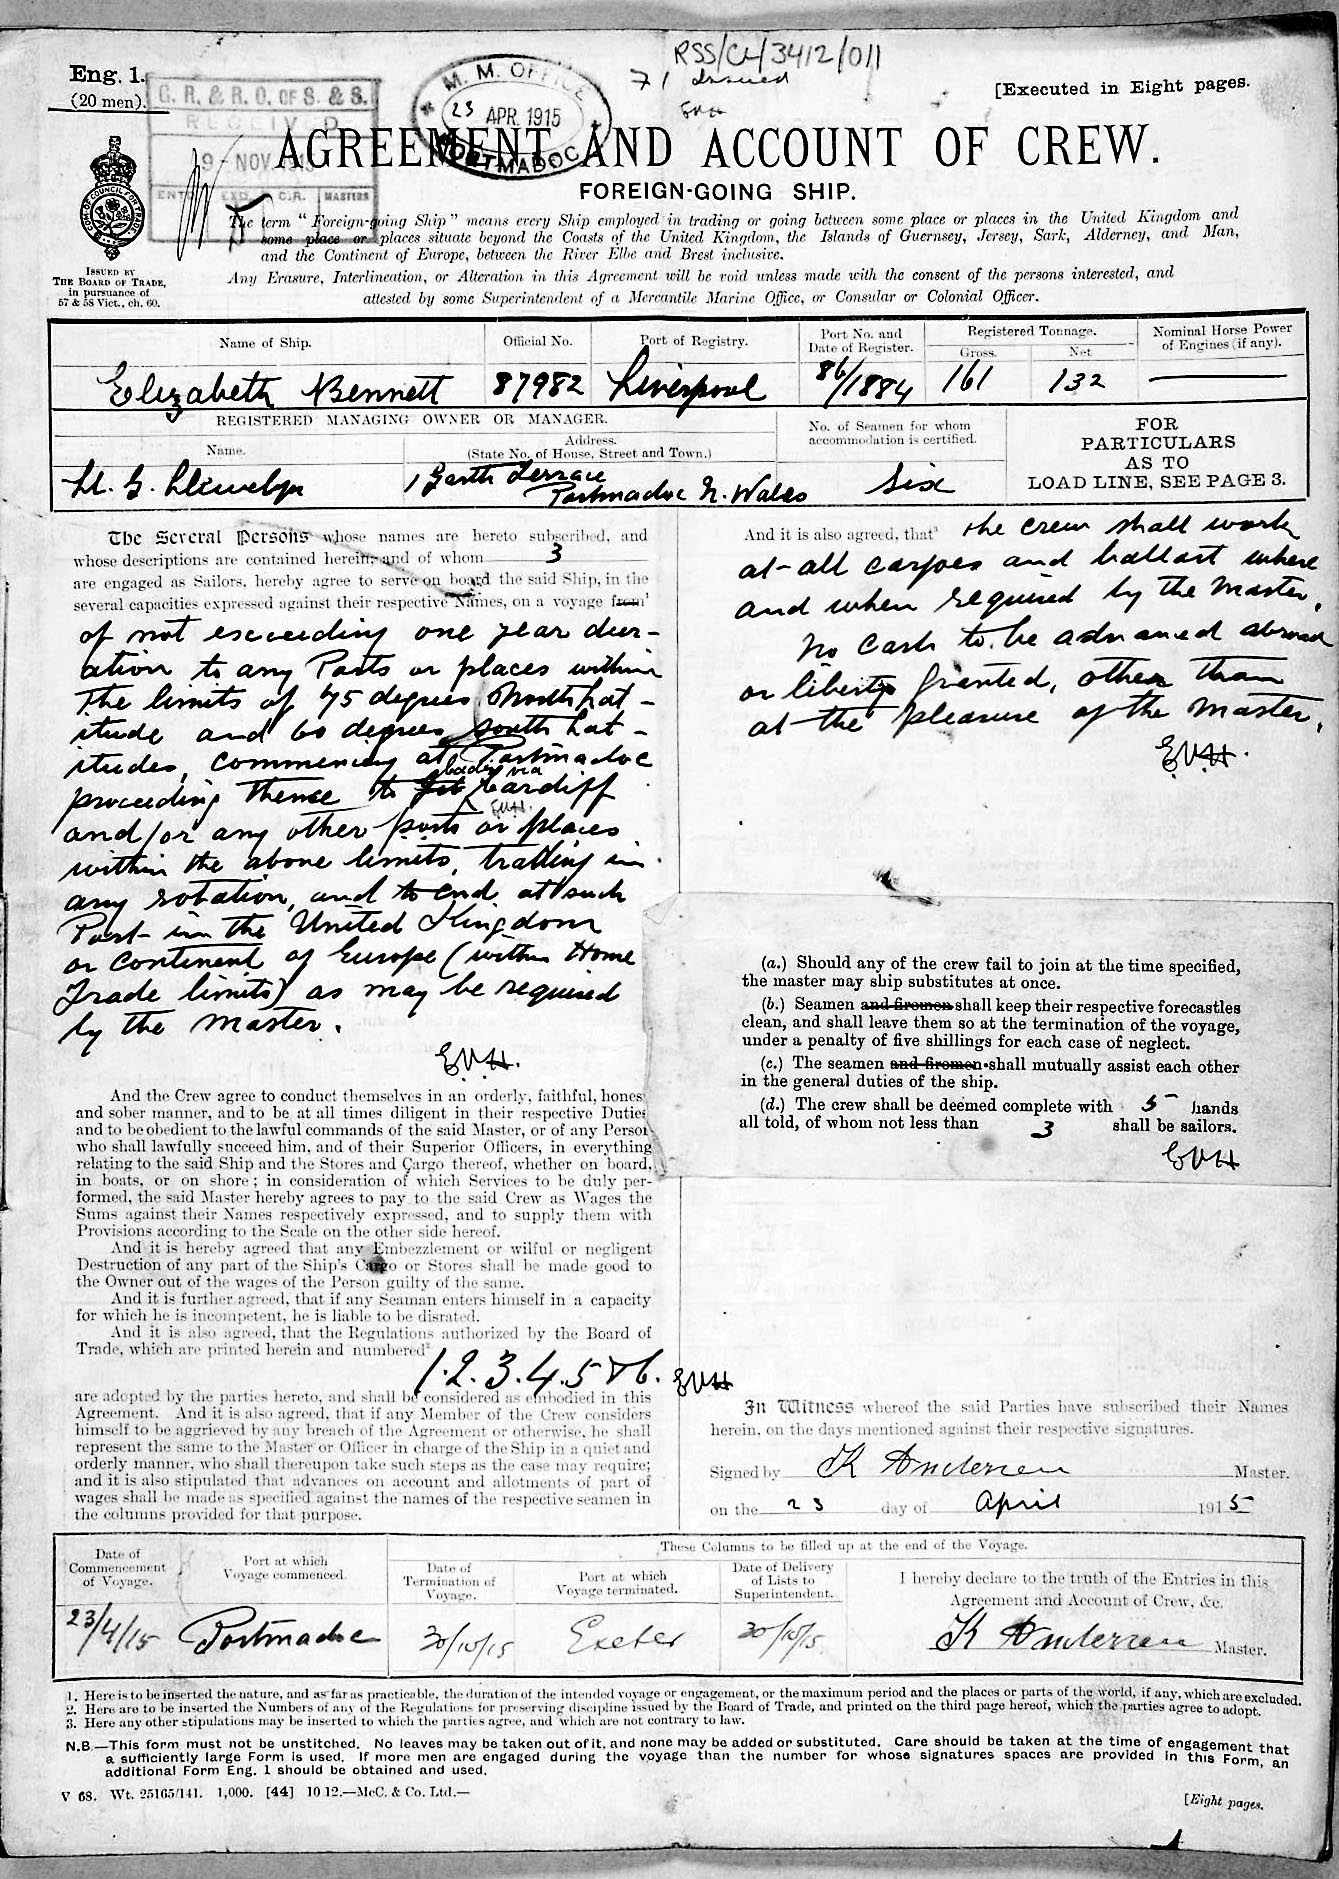 RSS/CL/3412/011
71 Issued
EVH
Eng. 1.
(20 men).
G. R. & R. O. OF S. & S.
RECEIVED
9 - NOV. 191
ENT EXD. C.R. MASTERS
M. M. OFFICE
23 APR. 1915
PORTMADOC
[Executed in Eight pages.
AGREEMENT AND ACCOUNT OF CREW.
FOREIGN-GOING SHIP.
ISSUED BY
THE BOARD OF TRADE,
in pursuance of
57 & 58 Vict., ch. 60.
The term "Foreign-going Ship" means every Ship employed in trading or going between some place or places in the United Kingdom and
some place or places situate beyond the Coasts of the United Kingdom, the Islands of Guernsey, Jersey, Sark, Alderney, and Man,
and the Continent of Europe, between the River Elbe and Brest inclusive.
Any Erasure, Interlineation, or Alteration in this Agreement will be void unless made with the consent of the persons interested, and
attested by some Superintendent of a Mercantile Marine Office, or Consular or Colonial Officer.
Name of Ship.
Official No.
Port of Registry.
Port No. and
Date of Register.
Registered Tonnage.
Gross.
Net
Nominal Horse Power
of Engines (if any).
Elizabeth Bennett
87982
Liverpool
86/1884
161
132
REGISTERED MANAGING OWNER OR MANAGER.
Name.
Address.
(State No. of House, Street and Town.)
No. of Seamen for whom
accommodation is certified.
FOR
PARTICULARS
AS TO
LOAD LINE, SEE PAGE 3.
Ll. G. Llewelyn
1 Garth Terrace
Portmadoc N. Wales
Six
The Several Persons whose names are hereto subscribed, and
whose descriptions are contained herein, and of whom 3
are engaged as Sailors, hereby agree to serve on board the said Ship, in the
several capacities expressed against their respective Names, on a voyage from¹
of not exceeding one year dur-
ation to any Ports or places within
the limits of 75 degrees North Lat-
itude and 60 degrees South Lat-
itudes, commencing at Portmadoc
proceeding thence to load via Cardiff
EVH.
and/or any other ports or places
within the above limits, trading in
any rotation, and to end at such
Port in the United Kingdom
or Continent of Europe (within Home
Trade limits) as may be required
by the Master.
EVH.
And the Crew agree to conduct themselves in an orderly, faithful, hones
and sober manner, and to be at all times diligent in their respective Duties
and to be obedient to the lawful commands of the said Master, or of any Person
who shall lawfully succeed him, and of their Superior Officers, in everything
relating to the said Ship and the Stores and Cargo thereof, whether on board,
in boats, or on shore; in consideration of which Services to be duly per-
formed, the said Master hereby agrees to pay to the said Crew as Wages the
Sums against their Names respectively expressed, and to supply them with
Provisions according to the Scale on the other side hereof.
And it is hereby agreed that any Embezzlement or wilful or negligent
Destruction of any part of the Ship's Cargo or Stores shall be made good to
the Owner out of the wages of the Person guilty of the same.
And it is further agreed, that if any Seaman enters himself in a capacity
for which he is incompetent, he is liable to be disrated.
And it is also agreed, that the Regulations authorized by the Board of
Trade, which are printed herein and numbered²
1. 2. 3. 4. 5 & 6. EVH
are adopted by the parties hereto, and shall be considered as embodied in this
Agreement. And it is also agreed, that if any Member of the Crew considers
himself to be aggrieved by any breach of the Agreement or otherwise, he shall
represent the same to the Master or Officer in charge of the Ship in a quiet and
orderly manner, who shall thereupon take such steps as the case may require;
and it is also stipulated that advances on account and allotments of part of
wages shall be made as specified against the names of the respective seamen in
the columns provided for that purpose.
And it is also agreed, that³ the crew shall work
at all cargoes and ballast where
and when required by the Master.
No cash to be advanced abroad
or liberty granted, other than
at the pleasure of the Master.
EVH.
(a.) Should any of the crew fail to join at the time specified,
the master may ship substitutes at once.
(b.) Seamen and firemen shall keep their respective forecastles
clean, and shall leave them so at the termination of the voyage,
under a penalty of five shillings for each case of neglect.
(c.) The seamen and firemen shall mutually assist each other
in the general duties of the ship.
(d.) The crew shall be deemed complete with 5 hands
all told, of whom not less than 3 shall be sailors.
EVH
In Witness whereof the said Parties have subscribed their Names
herein, on the days mentioned against their respective signatures.
Signed by K Andersen Master.
on the 23 day of April 1915
Date of
Commencement
of Voyage.
Port at which
Voyage commenced.
These Columns to be filled up at the end of the Voyage.
Date of
Termination of
Voyage.
Port at which
Voyage terminated.
Date of Delivery
of Lists to
Superintendent.
I hereby declare to the truth of the Entries in this
Agreement and Account of Crew, &c.
23/4/15
Portmadoc
30/10/15
Exeter
30/10/15
K Andersen Master.
1. Here is to be inserted the nature, and as far as practicable, the duration of the intended voyage or engagement, or the maximum period and the places or parts of the world, if any, which are excluded.
2. Here are to be inserted the Numbers of any of the Regulations for preserving discipline issued by the Board of Trade, and printed on the third page hereof, which the parties agree to adopt.
3. Here any other stipulations may be inserted to which the parties agree, and which are not contrary to law.
N.B.—This form must not be unstitched. No leaves may be taken out of it, and none may be added or substituted. Care should be taken at the time of engagement that
a sufficiently large Form is used. If more men are engaged during the voyage than the number for whose signatures spaces are provided in this Form, an
additional Form Eng. 1 should be obtained and used.
V 68. Wt. 25165/141. 1,000. [44] 10 12.—McC. & Co. Ltd.—
[Eight pages.